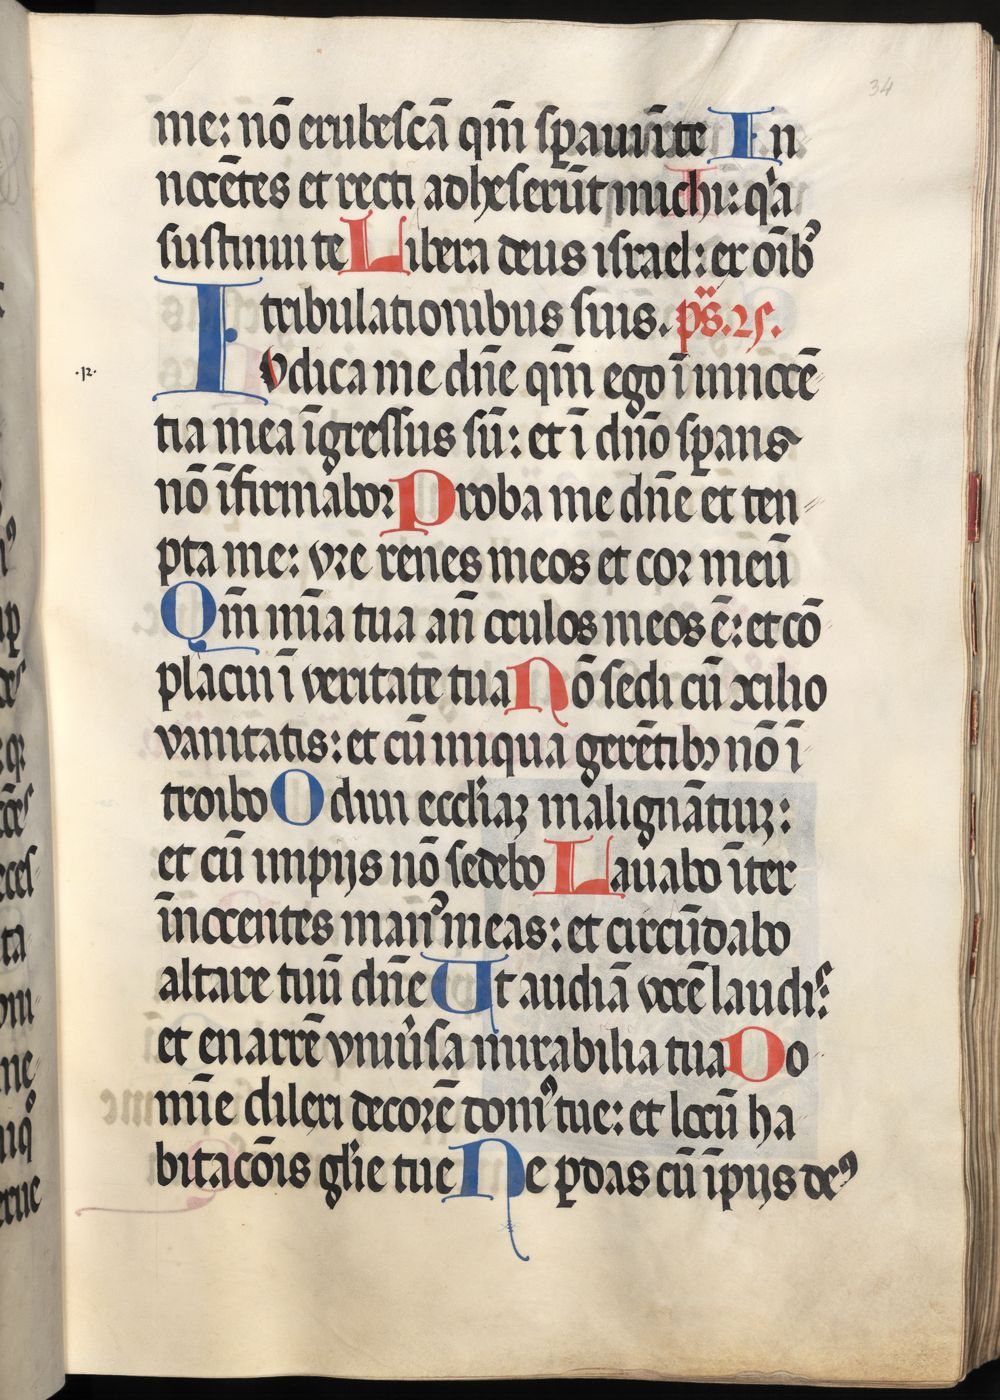 34
me: nō erubescā qm̄ speraui ī te In
nocētes et recti adheserūt michi: qa
sustinui te Libera deus israel: ex oīb9
tribulationibus suis. ps. 25.
·12·
Iudica me dn̄e qm̄ ego ī innocē
tia mea īgressus sū: et ī dn̄o sꝑans
nō īfirmabor Proba me dn̄e et ten
pta me: vre renes meos et cor meū
Qm̄ mīa tua an̄ oculos meos ē: et cō
placui ī veritate tua Nō sedi cū ↄcilio
vanitatis: et cū iniqua gerētibꝫ nō ī
troibo Odiui eccl'iaꝫ malignātiuꝫ:
et cū impijs nō sedebo Lauabo īter
īnocentes man9 meas: et circūdabo
altare tuū dn̄e Ut audiā vocē laudis:
et enarrē vniu'sa mirabilia tua Do
mīe dilexi decorē dom9 tue: et locū ha
bitacōis gl'ie tue Ne ꝑdas cū īpijs de9